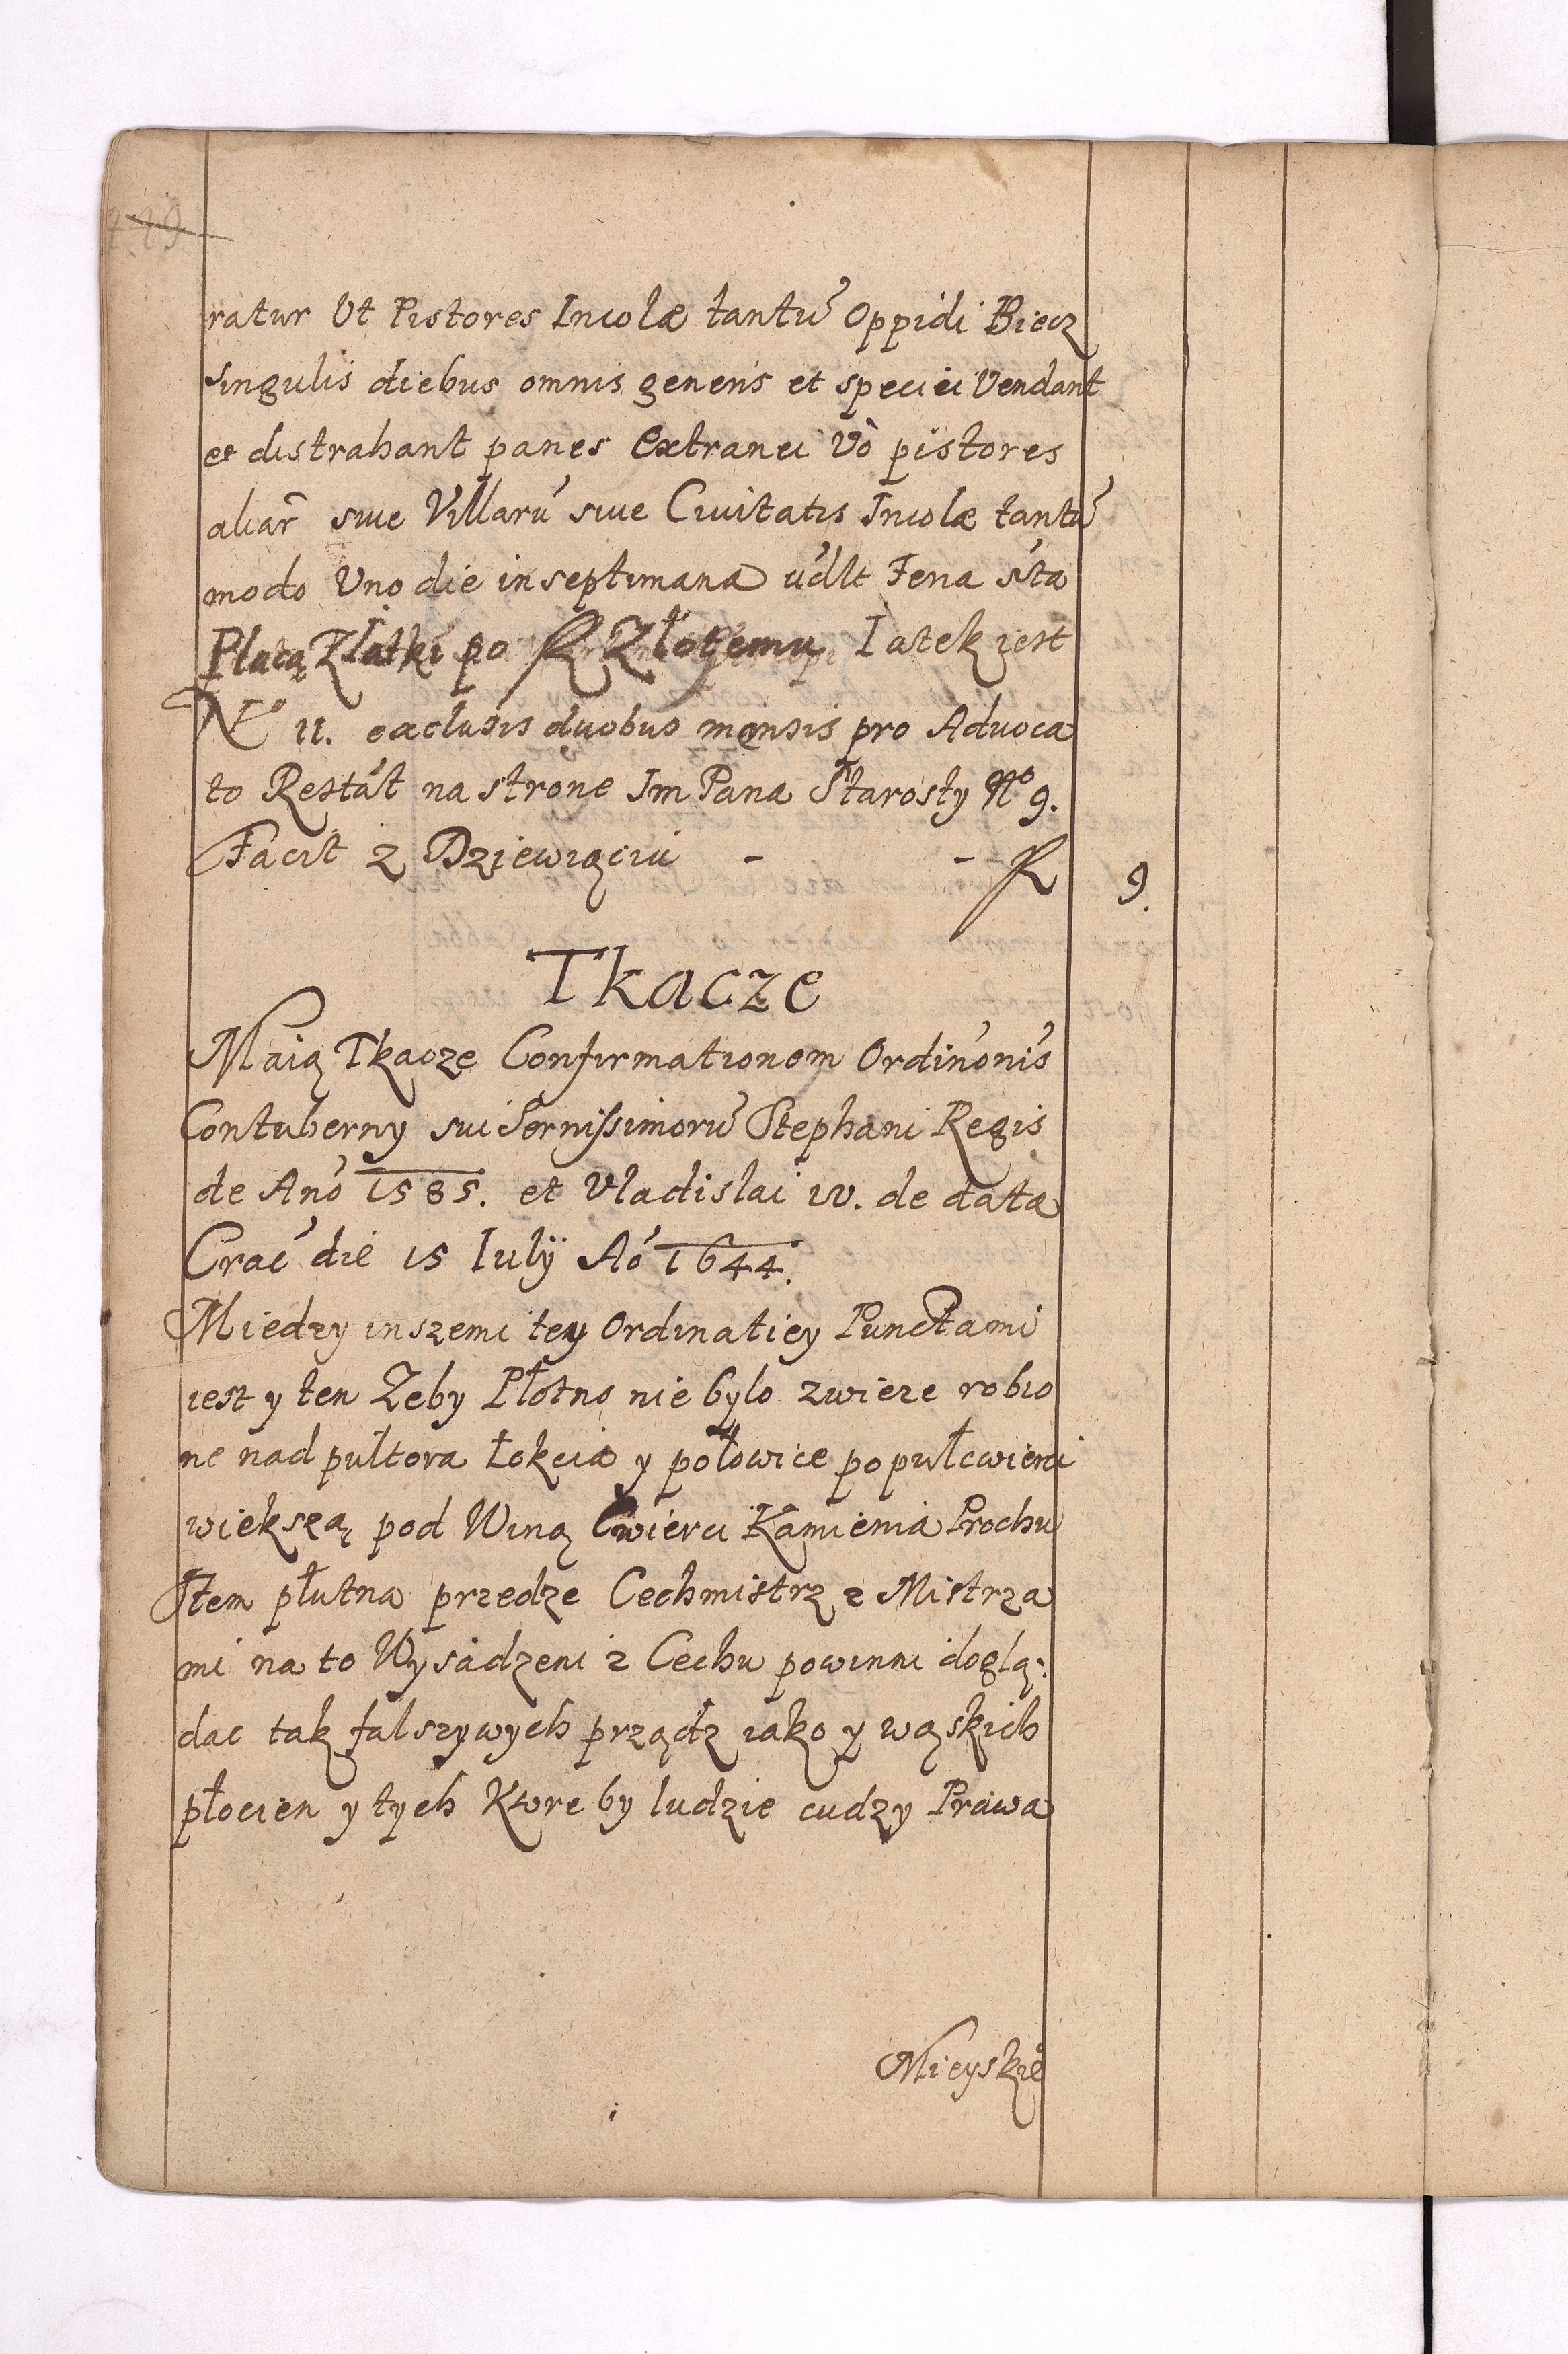 ratur Ut Pistores Incolæ tantũ Oppidi Biecz
singulis diebus omnis generis et speciei Vendant
et distrahant panes Extranei Vò pistores
aliar̃ siue Villarũ siue Ciuitatis Incolæ tantũ
modo Uno die in septimana ũdlt Feria s̃ta
Płacą Zlatki po fl Złotemu Iatek iest
No 11. exclusis duobus mensis pro Aduoca
to Restãt na strone Jm Pana Starosty No 9.
Facit z Dziewiąciu - - fl 9.
Tkacze
Maią Tkacze Confirmationem Ordiñonis
Contuberny sui Sernissimorũ Stephani Regis
de Año 1585. et Vladislai IV. de data
Crač die 15 Iulÿ Aõ 1644.
Miedzy inszemi tey Ordinatiey Punctami
iest y ten Zeby Płotno nie bylo zwierze robio
ne nad pultora Łokcia y połowice po pułcwierci
wiekszą pod Winą Cwierci Kamienia Prochu
Item płutna przedze Cechmistrz z Mistrza
mi na to Wysadzeni z Cechu powinni doglą:
dac tak falszywych prządz iako y wąskich
płocien y tych Ktore by ludzie cudzy Prawa
Mieyskie